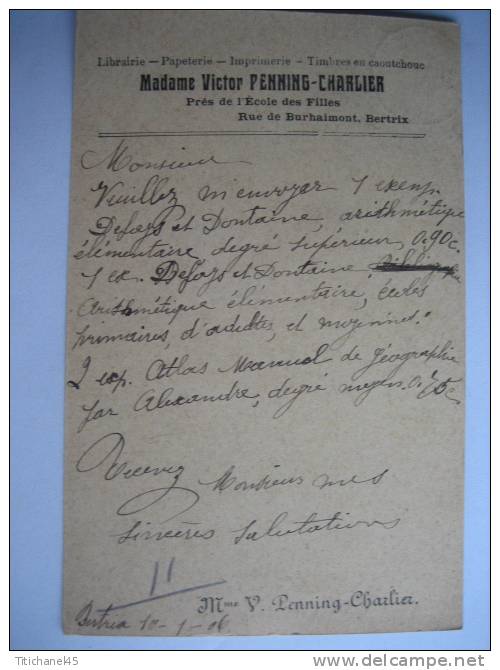 Librairie — Papeterie — Imprimerie — Timbres en caoutchouc
Madame Victor PENNING-CHARLIER
Près de l'École des Filles
Rue de Burhaimont, Bertrix
Monsieur
Veuillez m'envoyer 1 exemp.
Defays et Dontaine, arithmétique
élémentaire degré supérieur, 0.90c.
1 ex. Defays et Dontaine
Arithmétique élémentaire, écoles
primaires, d'adultes, et moyennes.
2 exp. Atlas Manuel de géographie
par Alexandre, degré moyen. 0.75c
Recevez Monsieur mes
sincères salutations
11
Mme V. Penning-Charlier.
Bertrix 10-1-06
Titichane45
delcampe.net